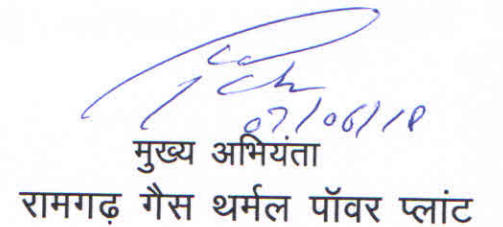 07/06/18
मुख्य अभियंता
रामगढ़ गैस थर्मल पॉवर प्लांट